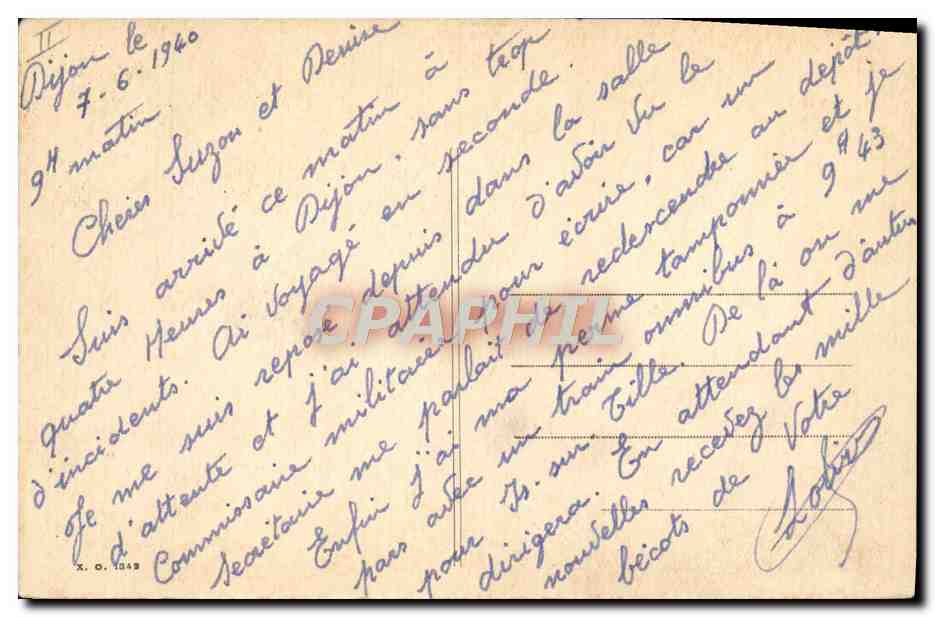 II
Dijon le
7.6.1940
9H matin
Cheres Suzon et Denise
Suis arrivé ce matin à
quatre Heures à Dijon, sans trop
d'incidents. Ai voyagé en seconde.
Je me suis reposé depuis dans la salle
d'attente et j'ai attendu d'avoir vu le
Commissaire militaire pour écrire, car un
Secretaire me parlait de redescendre au depôt.
Enfin j'ai ma perme tamponnée et je
pars avec un train omnibus à 9H43
pour Is-sur-Tille. De là on me
dirigera. En attendant d'autres
nouvelles recevez les mille
bécots de Votre
CPAPHIL
X. O. 1342